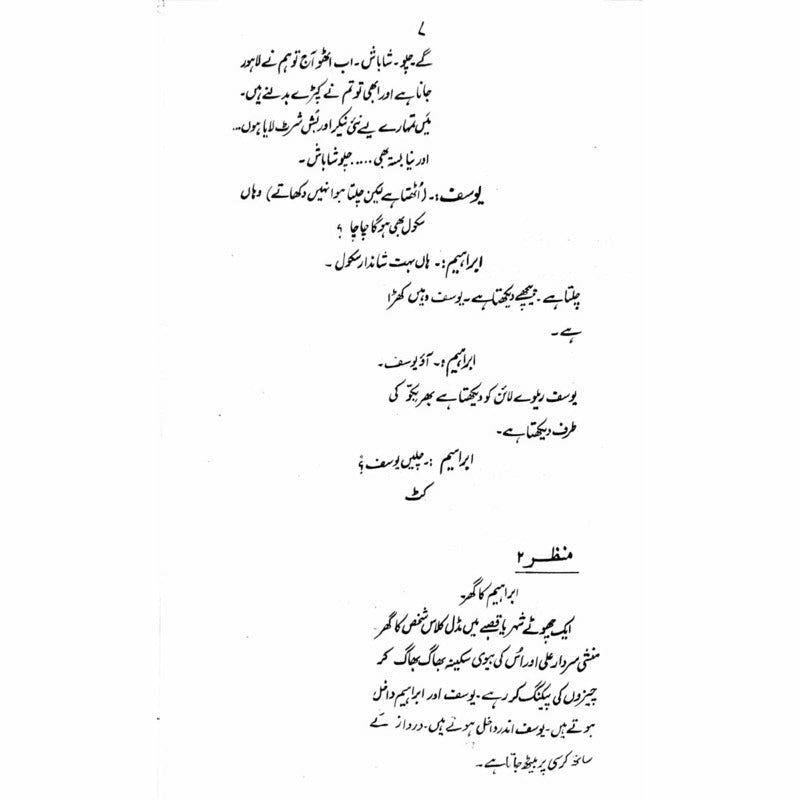 ۷
گے چلو۔ شاباش۔ اب اٹھو آج تو ہم نے لاہور
جانا ہے اور ابھی تو تم نے کپڑے بدلنے ہیں۔
میں تمہارے لیے نئی نیکر اور بُش شرٹ لایا ہوں...
اور نیا بستہ بھی ..... چلو شاباش۔
یوسف :۔ (اُٹھتا ہے لیکن چلتا ہوا نہیں دکھاتے) وہاں
سکول بھی ہوگا چاچا ؟
ابراہیم :۔ ہاں بہت شاندار سکول۔
چلتا ہے۔ پیچھے دیکھتا ہے۔ یوسف وہیں کھڑا
ہے۔
ابراہیم :۔ آؤ یوسف۔
یوسف ریلوے لائن کو دیکھتا ہے پھر بگو کی
طرف دیکھتا ہے۔
ابراہیم :۔ چلیں یوسف ؟
کٹ
منظر ۲
ابراہیم کا گھر۔
ایک چھوٹے شہر یا قصبے میں مڈل کلاس شخص کا گھر
منشی سردار علی اور اُس کی بیوی سکینہ بھاگ بھاگ کر
چیزوں کی پیکنگ کر رہے۔ یوسف اور ابراہیم داخل
ہوتے ہیں۔ یوسف اندر داخل ہوئے ہیں۔ درداز کے
ساتھ کرسی پر بیٹھ جاتا ہے۔